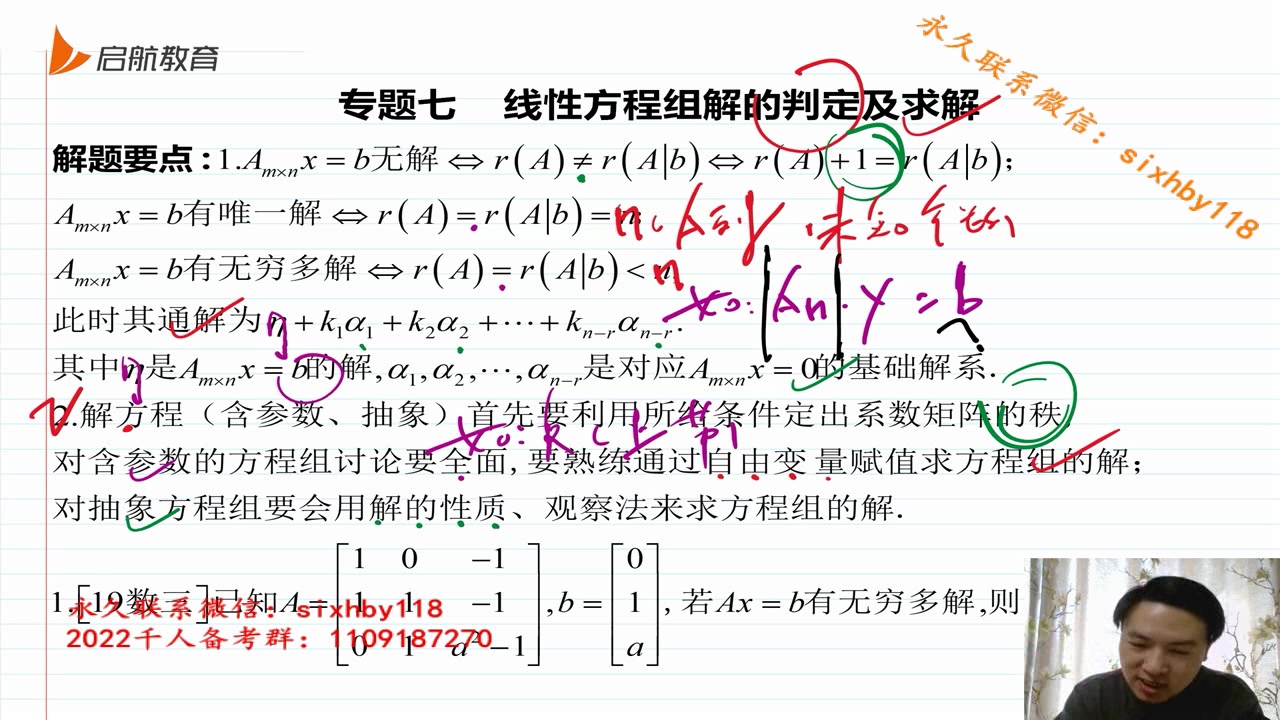 启航教育
永久联系微信：sixhby118
专题七 线性方程组解的判定及求解
解题要点：1.Aₘₓₙx = b无解 ⇔ r(A) ≠ r(A|b) ⇔ r(A)+1 = r(A|b);
Aₘₓₙx = b有唯一解 ⇔ r(A) = r(A|b) = n;
n: A列 未知个数
Aₘₓₙx = b有无穷多解 ⇔ r(A) = r(A|b) < n
|An|·y = b
此时其通解为η + k₁α₁ + k₂α₂ + ⋯ + kₙ₋ᵣαₙ₋ᵣ.
其中η是Aₘₓₙx = b的解, α₁, α₂, ⋯, αₙ₋ᵣ是对应Aₘₓₙx = 0的基础解系.
2.解方程（含参数、抽象）首先要利用所给条件定出系数矩阵的秩,
对含参数的方程组讨论要全面, 要熟练通过自由变量赋值求方程组的解；
对抽象方程组要会用解的性质、观察法来求方程组的解.
1.[19数三]已知A = [1 0 −1; 1 1 −1; 0 1 a²−1], b = [0; 1; a], 若Ax = b有无穷多解,则
永久联系微信：sixhby118
2022千人备考群：1109187270